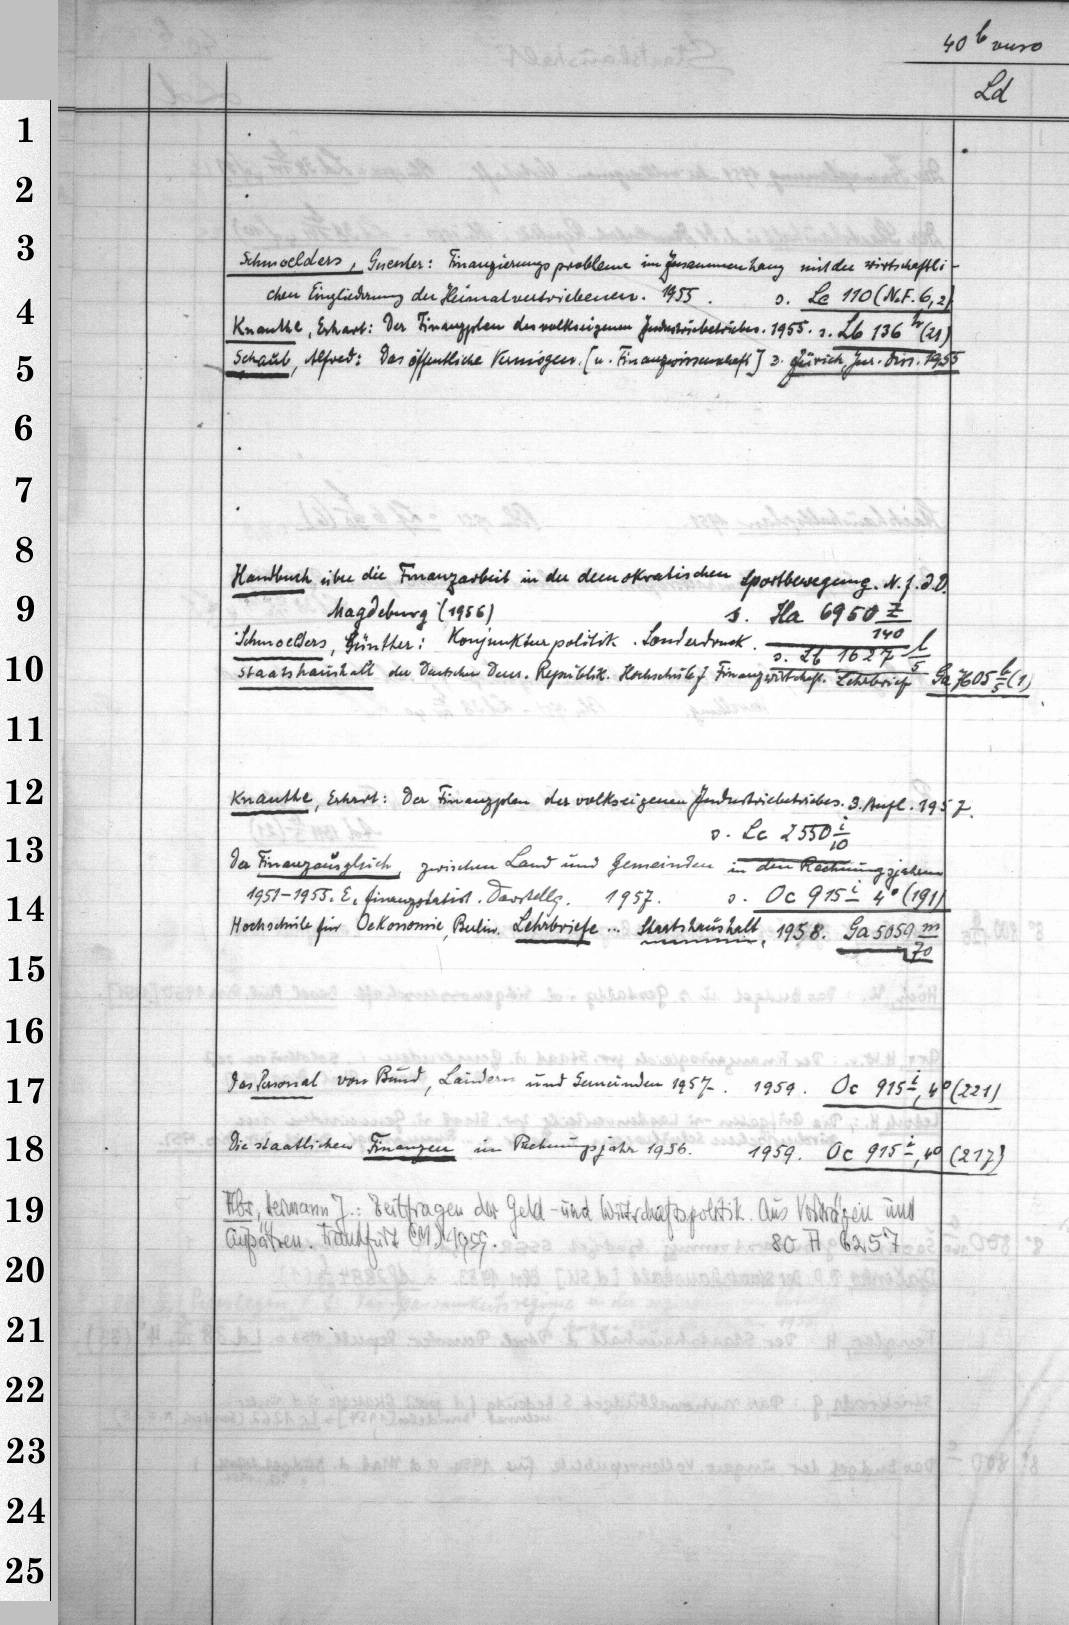 40 b verso
Ld
Schmoelders, Guenter: Finanzierungsprobleme im Zusammenhang mit der wirtschaftli-
chen Eingliederung der Heimatvertriebenen. 1955. s. Lc 110 (N.F. 6,2)
Knauthe, Erhart: Der Finanzplan des volkseigenen Industriebetriebes. 1955. s. Lb 136 (21)
Schaub, Alfred: Das öffentliche Vermögen. [u. Finanzwissenschaft] s. Zürich, Jur. Diss. 1955
Handbuch über die Finanzarbeit in der demokratischen Sportbewegung. N.f.d.D.
Magdeburg (1956) s. Ha 6950 Z/140
Schmoelders, Günther: Konjunkturpolitik. Sonderdruck. s. Lb 1627 l/5
Staatshaushalt der Deutschen Dem. Republik. Hochschule f. Finanzwirtschaft. Lehrbrief Ga 7605 b/5 (1)
Knauthe, Erhart: Der Finanzplan des volkseigenen Industriebetriebes. 3. Aufl. 1957.
s. Lc 2550 i/10
Der Finanzausgleich zwischen Land und Gemeinden in den Rechnungsjahren
1951-1955. E. finanzstatist. Darstellg. 1957. s. Oc 915 i 4° (191)
Hochschule für Oekonomie, Berlin. Lehrbriefe ... Staatshaushalt. 1958. Ga 5059 m/70
Das Personal von Bund, Ländern und Gemeinden 1957. 1959. Oc 915 i, 4° (221)
Die staatlichen Finanzen im Rechnungsjahr 1956. 1959. Oc 915 i, 4° (217)
Abs, Hermann J.: Zeitfragen der Geld- und Wirtschaftspolitik. Aus Vorträgen und
Aufsätzen. Frankfurt (M.) 1959. 80 A 6257
1
2
3
4
5
6
7
8
9
10
11
12
13
14
15
16
17
18
19
20
21
22
23
24
25